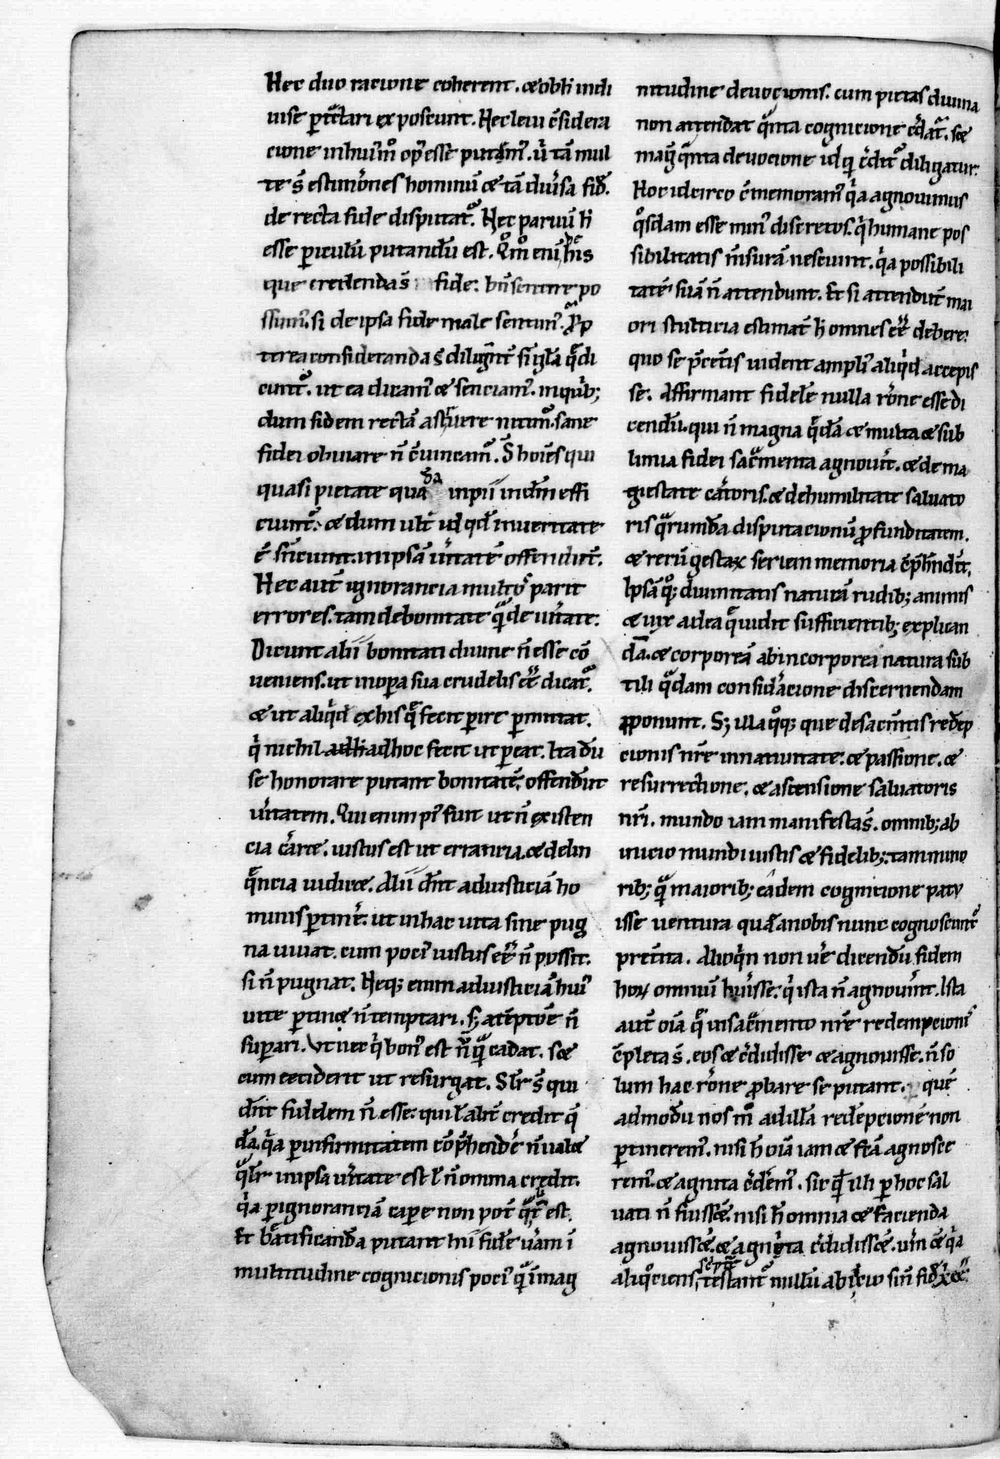 Hec duo racione coherent. & ob h̄ indi
uise ꝑt̄ctari exposcunt. Hec leui c̄sidera
cione in huīmͦ oꝑ esse putam᷒. ū tā mul
te s̄ estim̄ones hominū & tā diu̾sa fid̄.
de recta fide disputat᷒. Hec paruū h̄
esse ꝑiculū putandū est. Qm̊ eni his
que credenda s̄ fide: bn̄ sentire po
ssum᷒. si de ipsa fide male sentim᷒. Prop
terea consideranda s̄ diligent̄ singla q̄ di
cunt᷒. ut ea dicam᷒ & senciam᷒. in quib;
dum fidem rectā astruere nitim᷒. sane
fidei obuiare n̄ c̄uincam᷒. S̄ hoīes qui
quasi pietate quada inpii in dm̄ effi
ciunt᷒. & dum ult̄ id qd̄ in ueritate
ē sn̄ciunt. in ipsā u̾itatē offendunt᷒.
Hec aut̄ ignorancia multos parit
errores. tam de bonitate qͣ de u̾itate.
Dicunt alii bonitati diuine n̄ esse cō
ueniens. ut in oꝑa sua crudelis cē̾ dicat᷒.
& ut aliqͥd ex his q̄ fecit perire ꝑmittat.
qͥ nichil ad hoc fecit ut ꝑeat. Ita dū
se honorare putant bonitatē; offendūt
u̾itatem. Qui enim pͥ fuit ut n̄ existen
cia c̾arte. iustus est ut errancia. & delin
q̄ncia iudicet. Alii dn̄t ad iusticiā ho
minis ꝑtin̾e. ut in hac uita sine pug
na uiuat. cum poci᷒ iustus ee̾ n̄ possit.
si n̄ pugnat. Neq; enim ad iusticiā hui᷒
uite ꝑtinet n̄ temptari. s; a tēptōe n̄
suꝑari. Vt nec qͥ bon᷒ est nūqͣ cadat. set
cum ceciderit ut resurgat. Slr̄ s̄ qui
dn̄t fidelem n̄ esse: qui l̄ alit̄ credit q̄
dā. qͥa ꝑ infirmitatem cōp̄hend̾e n̄ ualet
qͣlr̄ in ipsa u̾itate est l̄ n̄ omnia credit.
qͥa ꝑ ignoranciā capere non pot̄ qͣt̄ est.
Et br̄atificanda putant hui᷒ fidē u̾am ī
multitudine cognicionis poci᷒ qͣ ī mag
nitudine deuocionis. cum pietas diuina
non attendat qͣnta cognicione c̾dat᷒. set
mag̾ qͣnta deuocione id qͥ c̾dit᷒ diligatur.
Hoc idcirco c̄memoram᷒ qͥa agnouimus
qͦsdam esse min᷒ discretos. qͥ humane pos
sibilitatis m̄surā nesciunt. qͥa possibili
tatē suā n̄ attendunt. Et si attendūt mai
ori stulticia estimāt h̄ omnes ee̾ debere.
quo se p̄ceteris uident ampli᷒ aliqͥd accepis
se. Affirmant fidelē nulla rōne esse di
cendū. qui n̄ magna qͣdā & multa & sub
limia fidei sacͣmenta agnouit̄. & de ma
giestate c̾atoris. & de humilitate saluato
ris qͣrumdā disputacionū ꝓfunditatem.
& rerū gestarꝝ seriem memoria cōp̄hendit̄.
Ipsā qͦ; diuinitatis naturā rudib; animis
& uix ad ea qͣ uidit sufficientib; explican
dā. & corporeā ab incorporea natura sub
tili qͣdam consid̾acione discernendam
ꝓponunt. S; illa qͦq; que de sacm̄tis redēp
cionis nr̄e in natiuitate. & passione. &
resurrectione. & ascensione saluatoris
nr̄i. mundo iam manifesta s̄. omnib; ab
inicio mundi iustis & fidelib;. tam mino
rib; qͣ maioribus; eādem cognicione patu
isse uentura quā a nobis nunc cognoscunt᷒
pret̾ita. Alioqͥn non u̾e dicendū fidem
horꝝ omniū habuisse. qͥ ista n̄ agnou̾int. Ista
aut̄ oīa q̄ in sacͣmento nr̄e redempcionis
c̄pleta s̄. eos & c̾didisse & agnouisse. n̄ so
lum hac rōne ꝓbare se putant. quē
admodū nos m̊ ad illā redēpcionē non
ꝑtinerem᷒. nisi h̄ oīa iam & fcā agnosce
rem᷒. & agnita c̾d̾em᷒. sic qͦ illi ꝑ hoc sal
uati n̄ fuissēt. nisi h̄ omnia & facienda
agnouissēt. & agnita c̾didissēt. u̾m & qͥa
aliqͦciens scptē testant᷒ nullū ab inicio sin̄ fid̄ xͥ ee̾